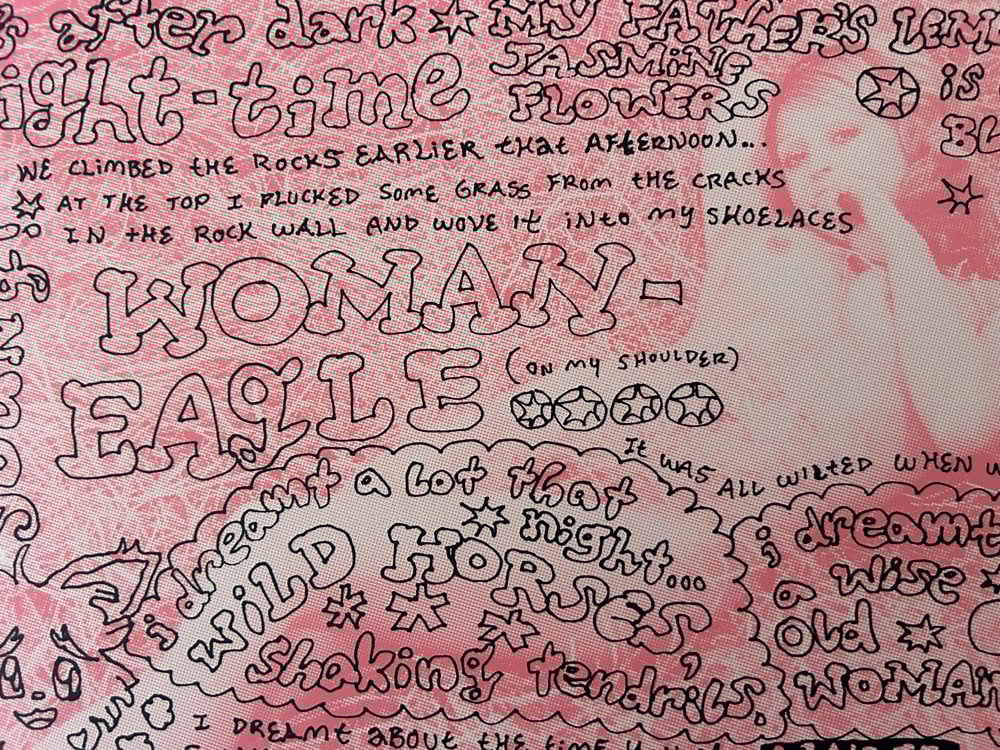 after dark
MY FATHER'S LEM
ight-time
JASMiNE
FLOWERS
iS
BL
WE CLiMBED tHE ROCKS EARLiER tHat AFtERNOON...
AT THE TOP I PLUCKED SomE GRASS FRom tHE CRACKS
IN tHE ROCK WALL AND WOVE It iNto my SHOELACES
WOMAN-
EAgLE
(ON my SHOULDER)
It WAS ALL WiLtED WHEN
i dreamt a lot that
night...
WiLD HORSES
shaking tendrils.
i dreamt
a wise
old
WOMAN
I DREAmt aBOUt tHE timE